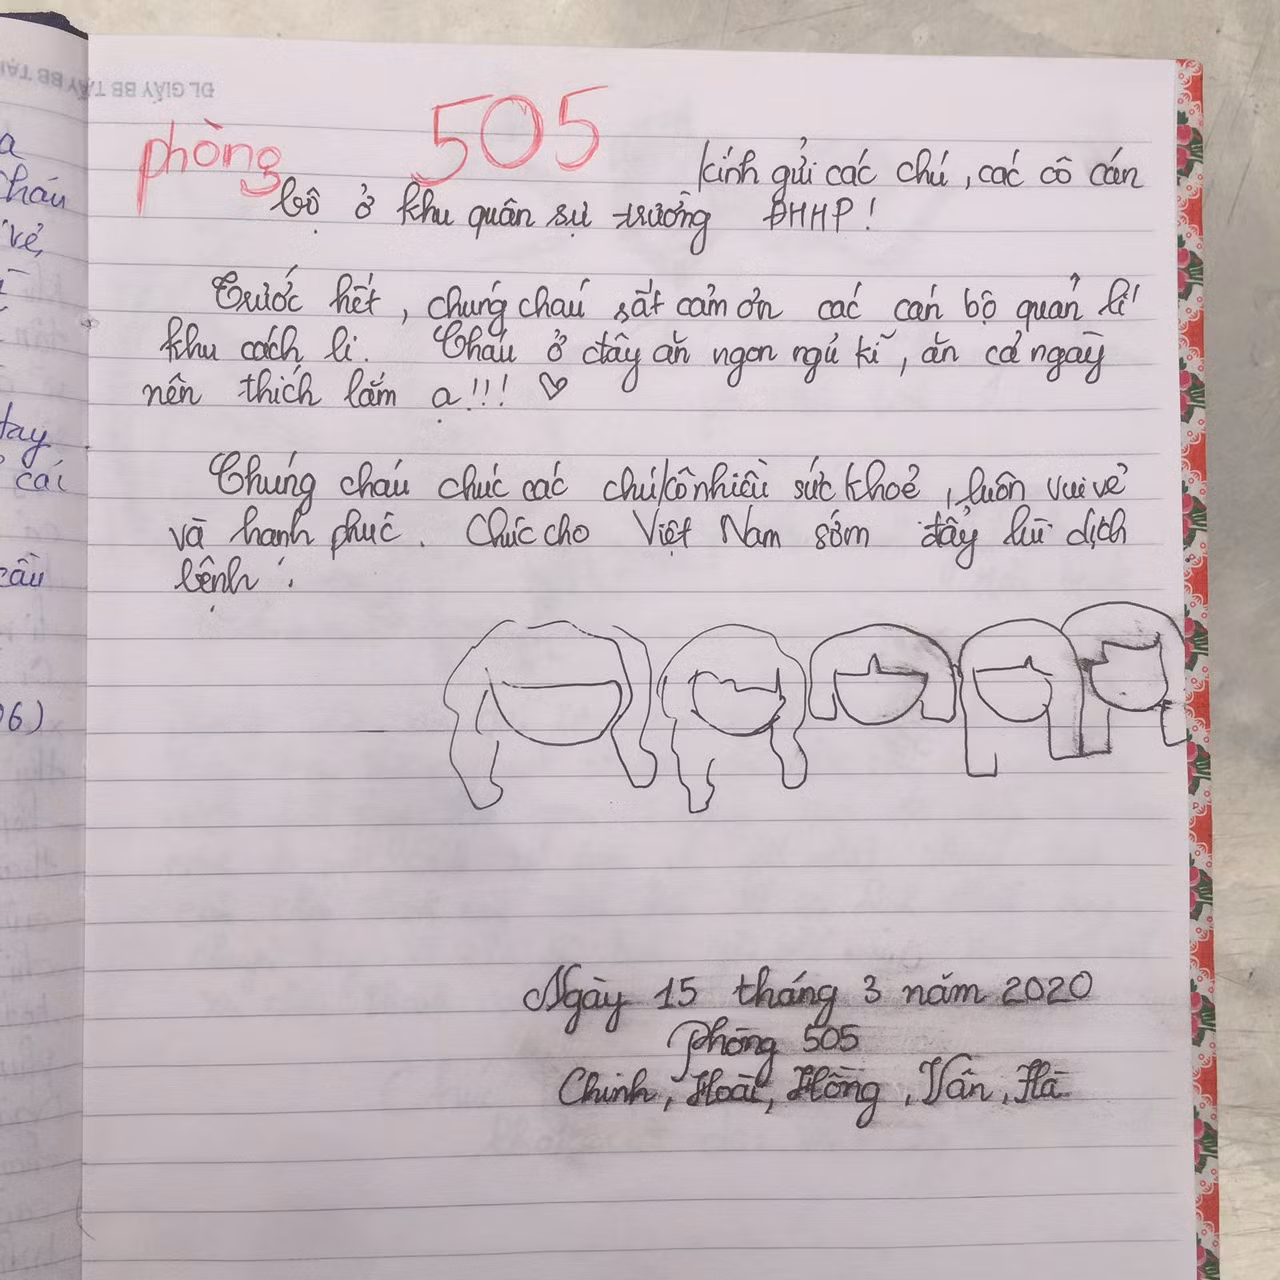 phòng 505
kính gửi các chú, các cô cán
bộ ở khu quân sự trường ĐHHP!
Trước hết, chúng cháu rất cảm ơn các cán bộ quản lí
khu cách li. Cháu ở đây ăn ngon ngủ kĩ, ăn cả ngày
nên thích lắm ạ!!! ♡
Chúng cháu chúc các chú/cô nhiều sức khoẻ, luôn vui vẻ
và hạnh phúc. Chúc cho Việt Nam sớm đẩy lùi dịch
bệnh.
Ngày 15 tháng 3 năm 2020
Phòng 505
Chinh, Hoài, Hồng, Vân, Hà
a
cháu
vẻ,
tay
cái
cầu
06)